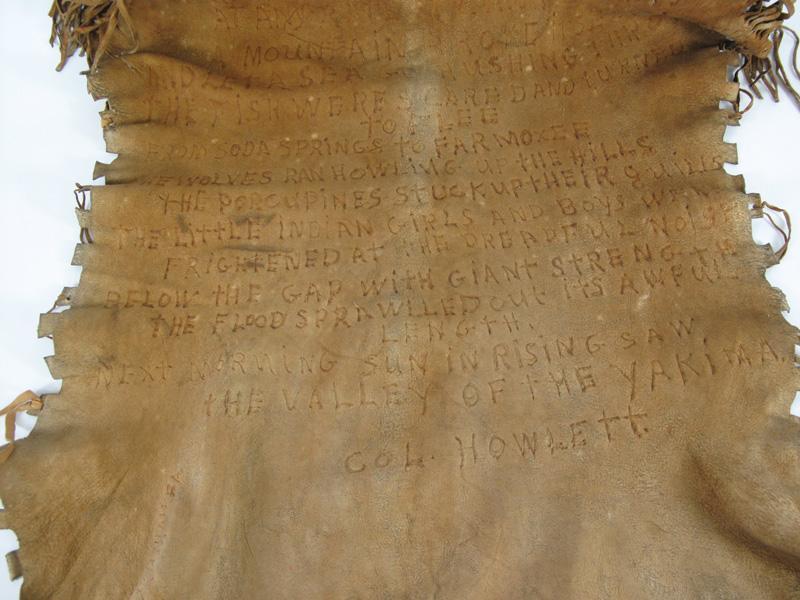 A MOUNTAIN BROKE
A SEA RUSHING THR
THE FISH WERE SCARED AND TURNED
TO FLEE
FROM SODA SPRINGS TO FAR MOXEE
THE WOLVES RAN HOWLING UP THE HILLS
THE PORCUPINES STUCK UP THEIR QUILLS
THE LITTLE INDIAN GIRLS AND BOYS WERE
FRIGHTENED AT THE DREADFUL NOISE
BELOW THE GAP WITH GIANT STRENGTH
THE FLOOD SPRAWLLED OUT ITS AWFUL
LENGTH.
NEXT MORNING SUN IN RISING SAW,
THE VALLEY OF THE YAKIMA.
COL. HOWLETT.